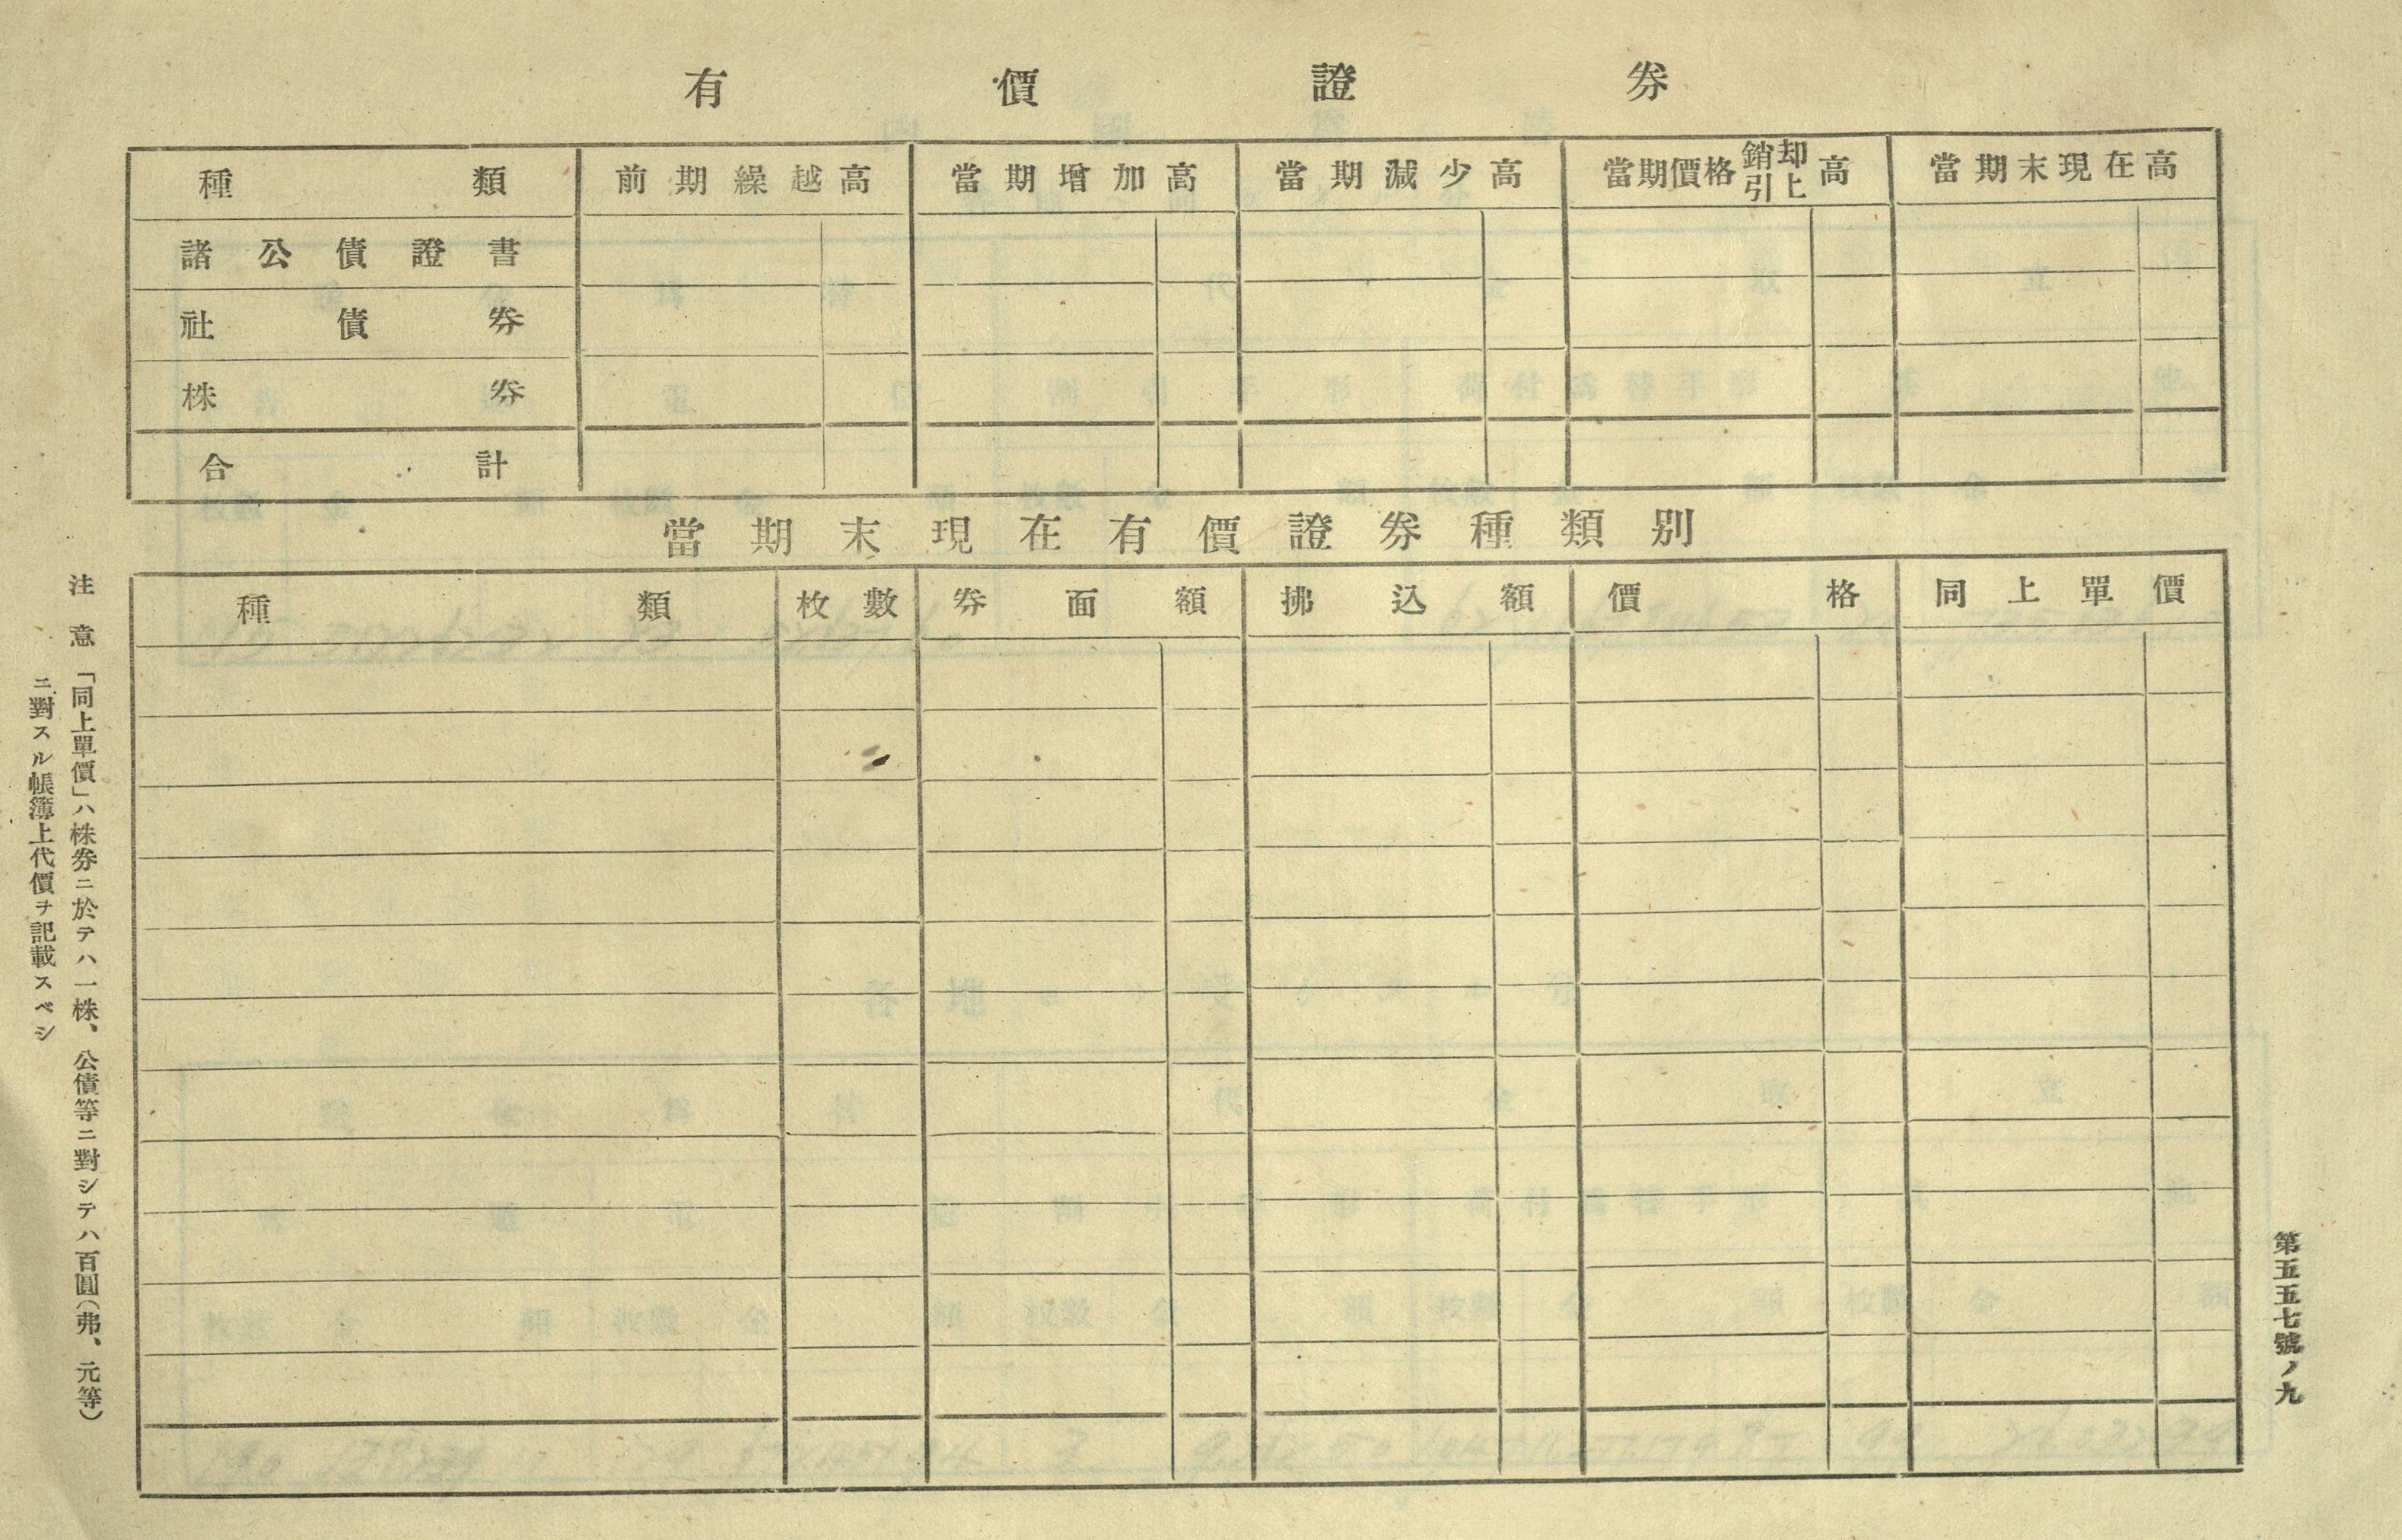 有價證券
種類 前期繰越高 當期增加高 當期減少高 當期價格銷却引上高 當期末現在高
諸公債證書
社債券
株券
合計
當期末現在有價證券種類別
種類 枚數 券面額 拂込額 價格 同上單價
注意 「同上單價」ハ株券ニ於テハ一株、公債等ニ對シテハ百圓(弗、元等)
ニ對スル帳簿上代價ヲ記載スベシ
第五五七號ノ九